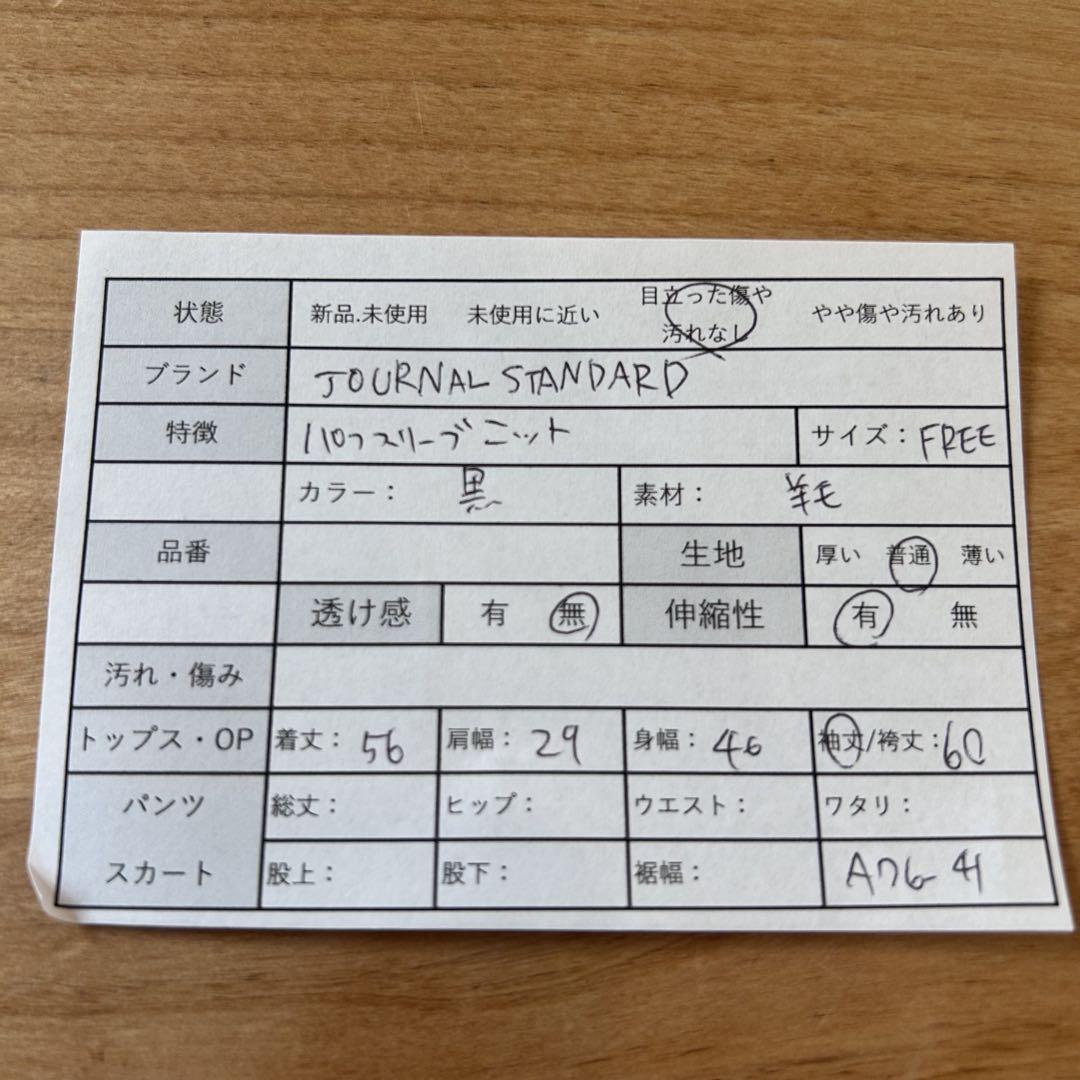 状態 新品.未使用 未使用に近い 目立った傷や やや傷や汚れあり
汚れなし
ブランド JOURNAL STANDARD
特徴 パフスリーブニット サイズ：FREE
カラー： 黒 素材： 羊毛
品番 生地 厚い 普通 薄い
透け感 有 無 伸縮性 有 無
汚れ・傷み
トップス・OP 着丈：56 肩幅：29 身幅：46 袖丈/裄丈：60
パンツ 総丈： ヒップ： ウエスト： ワタリ：
スカート 股上： 股下： 裾幅：